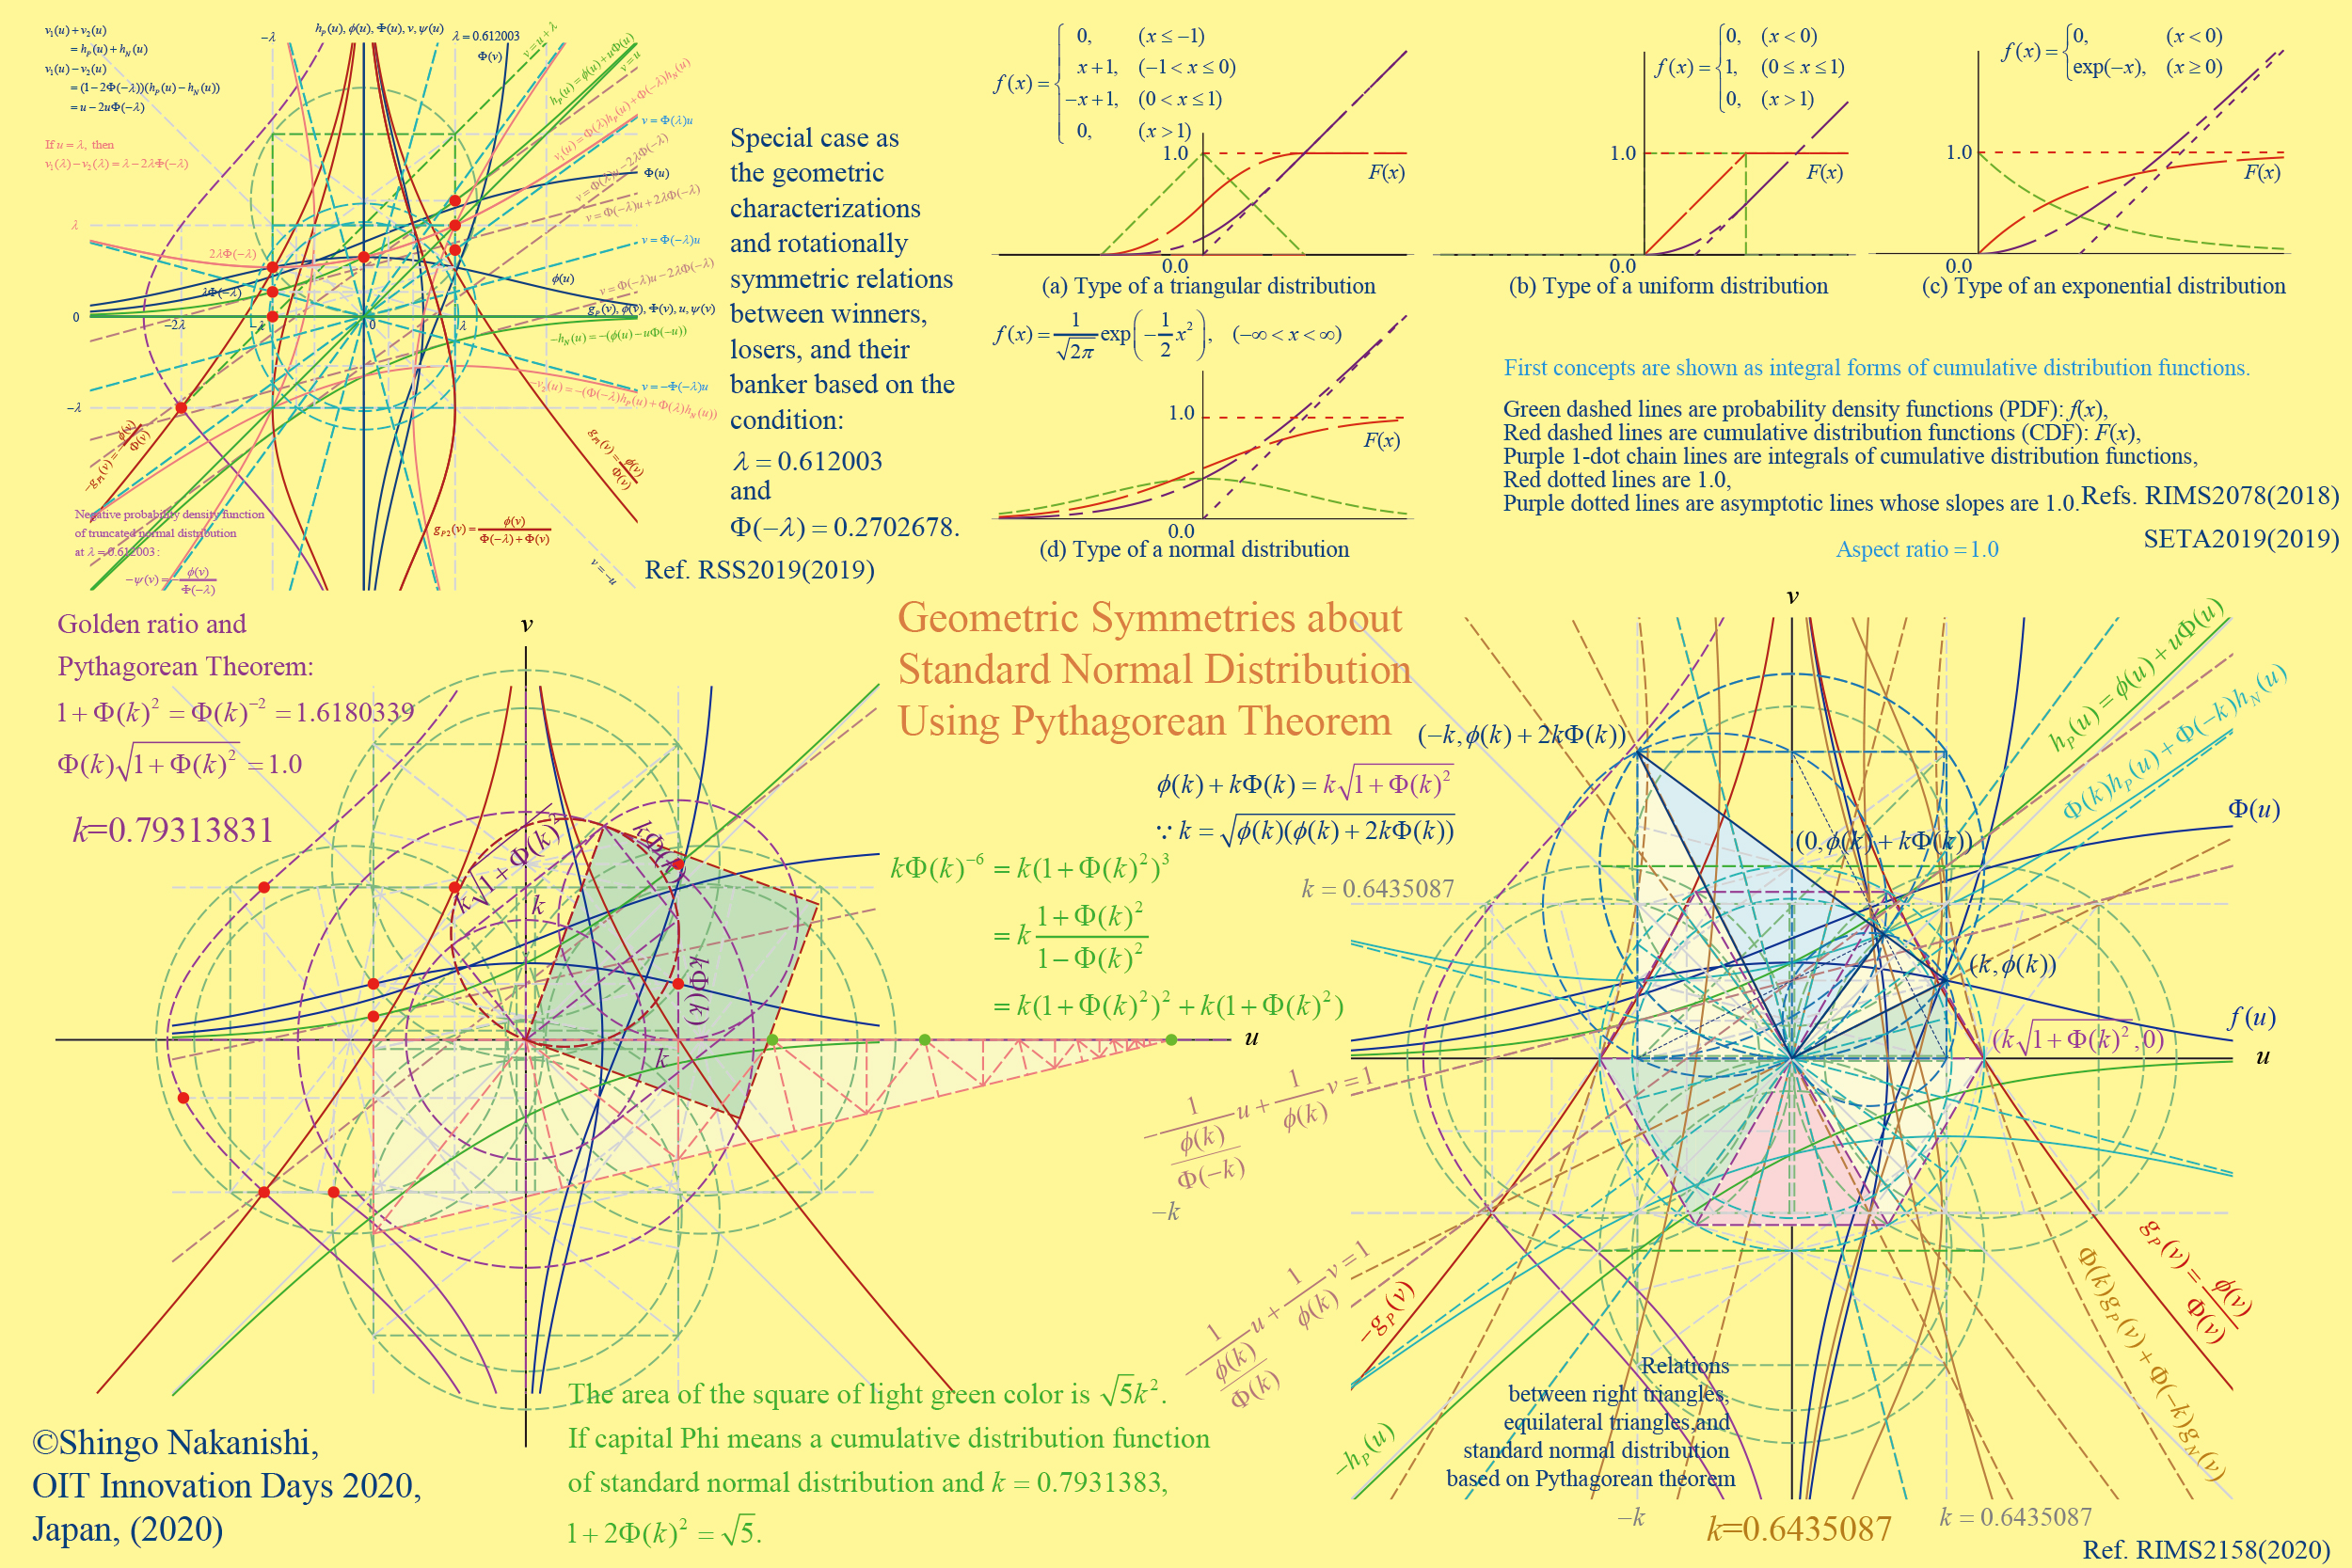 v₁(u)+v₂(u)
= h_P(u)+h_N(u)
v₁(u)−v₂(u)
= (1−2Φ(−λ))(h_P(u)−h_N(u))
= u−2uΦ(−λ)
If u = λ, then
v₁(λ)−v₂(λ) = λ−2λΦ(−λ)
−λ
h_P(u), ϕ(u), Φ(u), v, ψ(u)
λ = 0.612003
Φ(v)
v = u+λ
h_P(u) = ϕ(u)+uΦ(u)
v = u
v₁(u) = Φ(λ)h_P(u)+Φ(−λ)h_N(u)
v = Φ(λ)u
v = Φ(λ)u−2λΦ(−λ)
Φ(u)
v = Φ(−λ)u+2λΦ(−λ)
λ
v = Φ(−λ)u
2λΦ(−λ)
v = Φ(−λ)u−2λΦ(−λ)
ϕ(u)
λΦ(−λ)
g_P(v), ϕ(v), Φ(v), u, ψ(v)
0
−2λ
−λ
0
λ
−h_N(u) = −(ϕ(u)−uΦ(−u))
v = −Φ(−λ)u
−v₂(u) = −(Φ(−λ)h_P(u)+Φ(λ)h_N(u))
−λ
−g_P1(v) = −ϕ(v)/Φ(v)
g_P1(v) = ϕ(v)/Φ(v)
Negative probability density function
of truncated normal distribution
at λ = 0.612003 :
−ψ(v) = −ϕ(v)/Φ(−λ)
g_P2(v) = ϕ(v)/(Φ(−λ)+Φ(v))
v = −u
Special case as
the geometric
characterizations
and rotationally
symmetric relations
between winners,
losers, and their
banker based on the
condition:
λ = 0.612003
and
Φ(−λ) = 0.2702678.
Ref. RSS2019(2019)
f(x) = { 0, (x ≤ −1)
x+1, (−1 < x ≤ 0)
−x+1, (0 < x ≤ 1)
0, (x > 1)
1.0
F(x)
0.0
(a) Type of a triangular distribution
f(x) = { 0, (x < 0)
1, (0 ≤ x ≤ 1)
0, (x > 1)
1.0
F(x)
0.0
(b) Type of a uniform distribution
f(x) = { 0, (x < 0)
exp(−x), (x ≥ 0)
1.0
F(x)
0.0
(c) Type of an exponential distribution
f(x) = 1/√(2π) exp(−1/2 x²), (−∞ < x < ∞)
1.0
F(x)
0.0
(d) Type of a normal distribution
First concepts are shown as integral forms of cumulative distribution functions.
Green dashed lines are probability density functions (PDF): f(x),
Red dashed lines are cumulative distribution functions (CDF): F(x),
Purple 1-dot chain lines are integrals of cumulative distribution functions,
Red dotted lines are 1.0,
Purple dotted lines are asymptotic lines whose slopes are 1.0.
Refs. RIMS2078(2018)
SETA2019(2019)
Aspect ratio = 1.0
Geometric Symmetries about
Standard Normal Distribution
Using Pythagorean Theorem
Golden ratio and
Pythagorean Theorem:
1+Φ(k)² = Φ(k)⁻² = 1.6180339
Φ(k)√(1+Φ(k)²) = 1.0
k=0.79313831
v
k√(1+Φ(k)²)
kΦ(k)
k
kΦ(k)
k
u
ϕ(k)+kΦ(k) = k√(1+Φ(k)²)
∵ k = √(ϕ(k)(ϕ(k)+2kΦ(k)))
kΦ(k)⁻⁶ = k(1+Φ(k)²)³
= k (1+Φ(k)²)/(1−Φ(k)²)
= k(1+Φ(k)²)²+k(1+Φ(k)²)
k = 0.6435087
The area of the square of light green color is √5k².
If capital Phi means a cumulative distribution function
of standard normal distribution and k = 0.7931383,
1+2Φ(k)² = √5.
©Shingo Nakanishi,
OIT Innovation Days 2020,
Japan, (2020)
v
(−k, ϕ(k)+2kΦ(k))
h_P(u) = ϕ(u)+uΦ(u)
Φ(k)h_P(u)+Φ(−k)h_N(u)
Φ(u)
(0, ϕ(k)+kΦ(k))
(k, ϕ(k))
f(u)
(k√(1+Φ(k)²), 0)
u
−1/(ϕ(k)/Φ(−k)) u + 1/ϕ(k) v = 1
−k
−1/(ϕ(k)/Φ(k)) u + 1/ϕ(k) v = 1
−g_P(v)
g_P(v) = ϕ(v)/Φ(v)
Φ(k)g_P(v)+Φ(−k)g_N(v)
−h_P(u)
Relations
between right triangles,
equilateral triangles and
standard normal distribution
based on Pythagorean theorem
−k
k=0.6435087
k = 0.6435087
Ref. RIMS2158(2020)